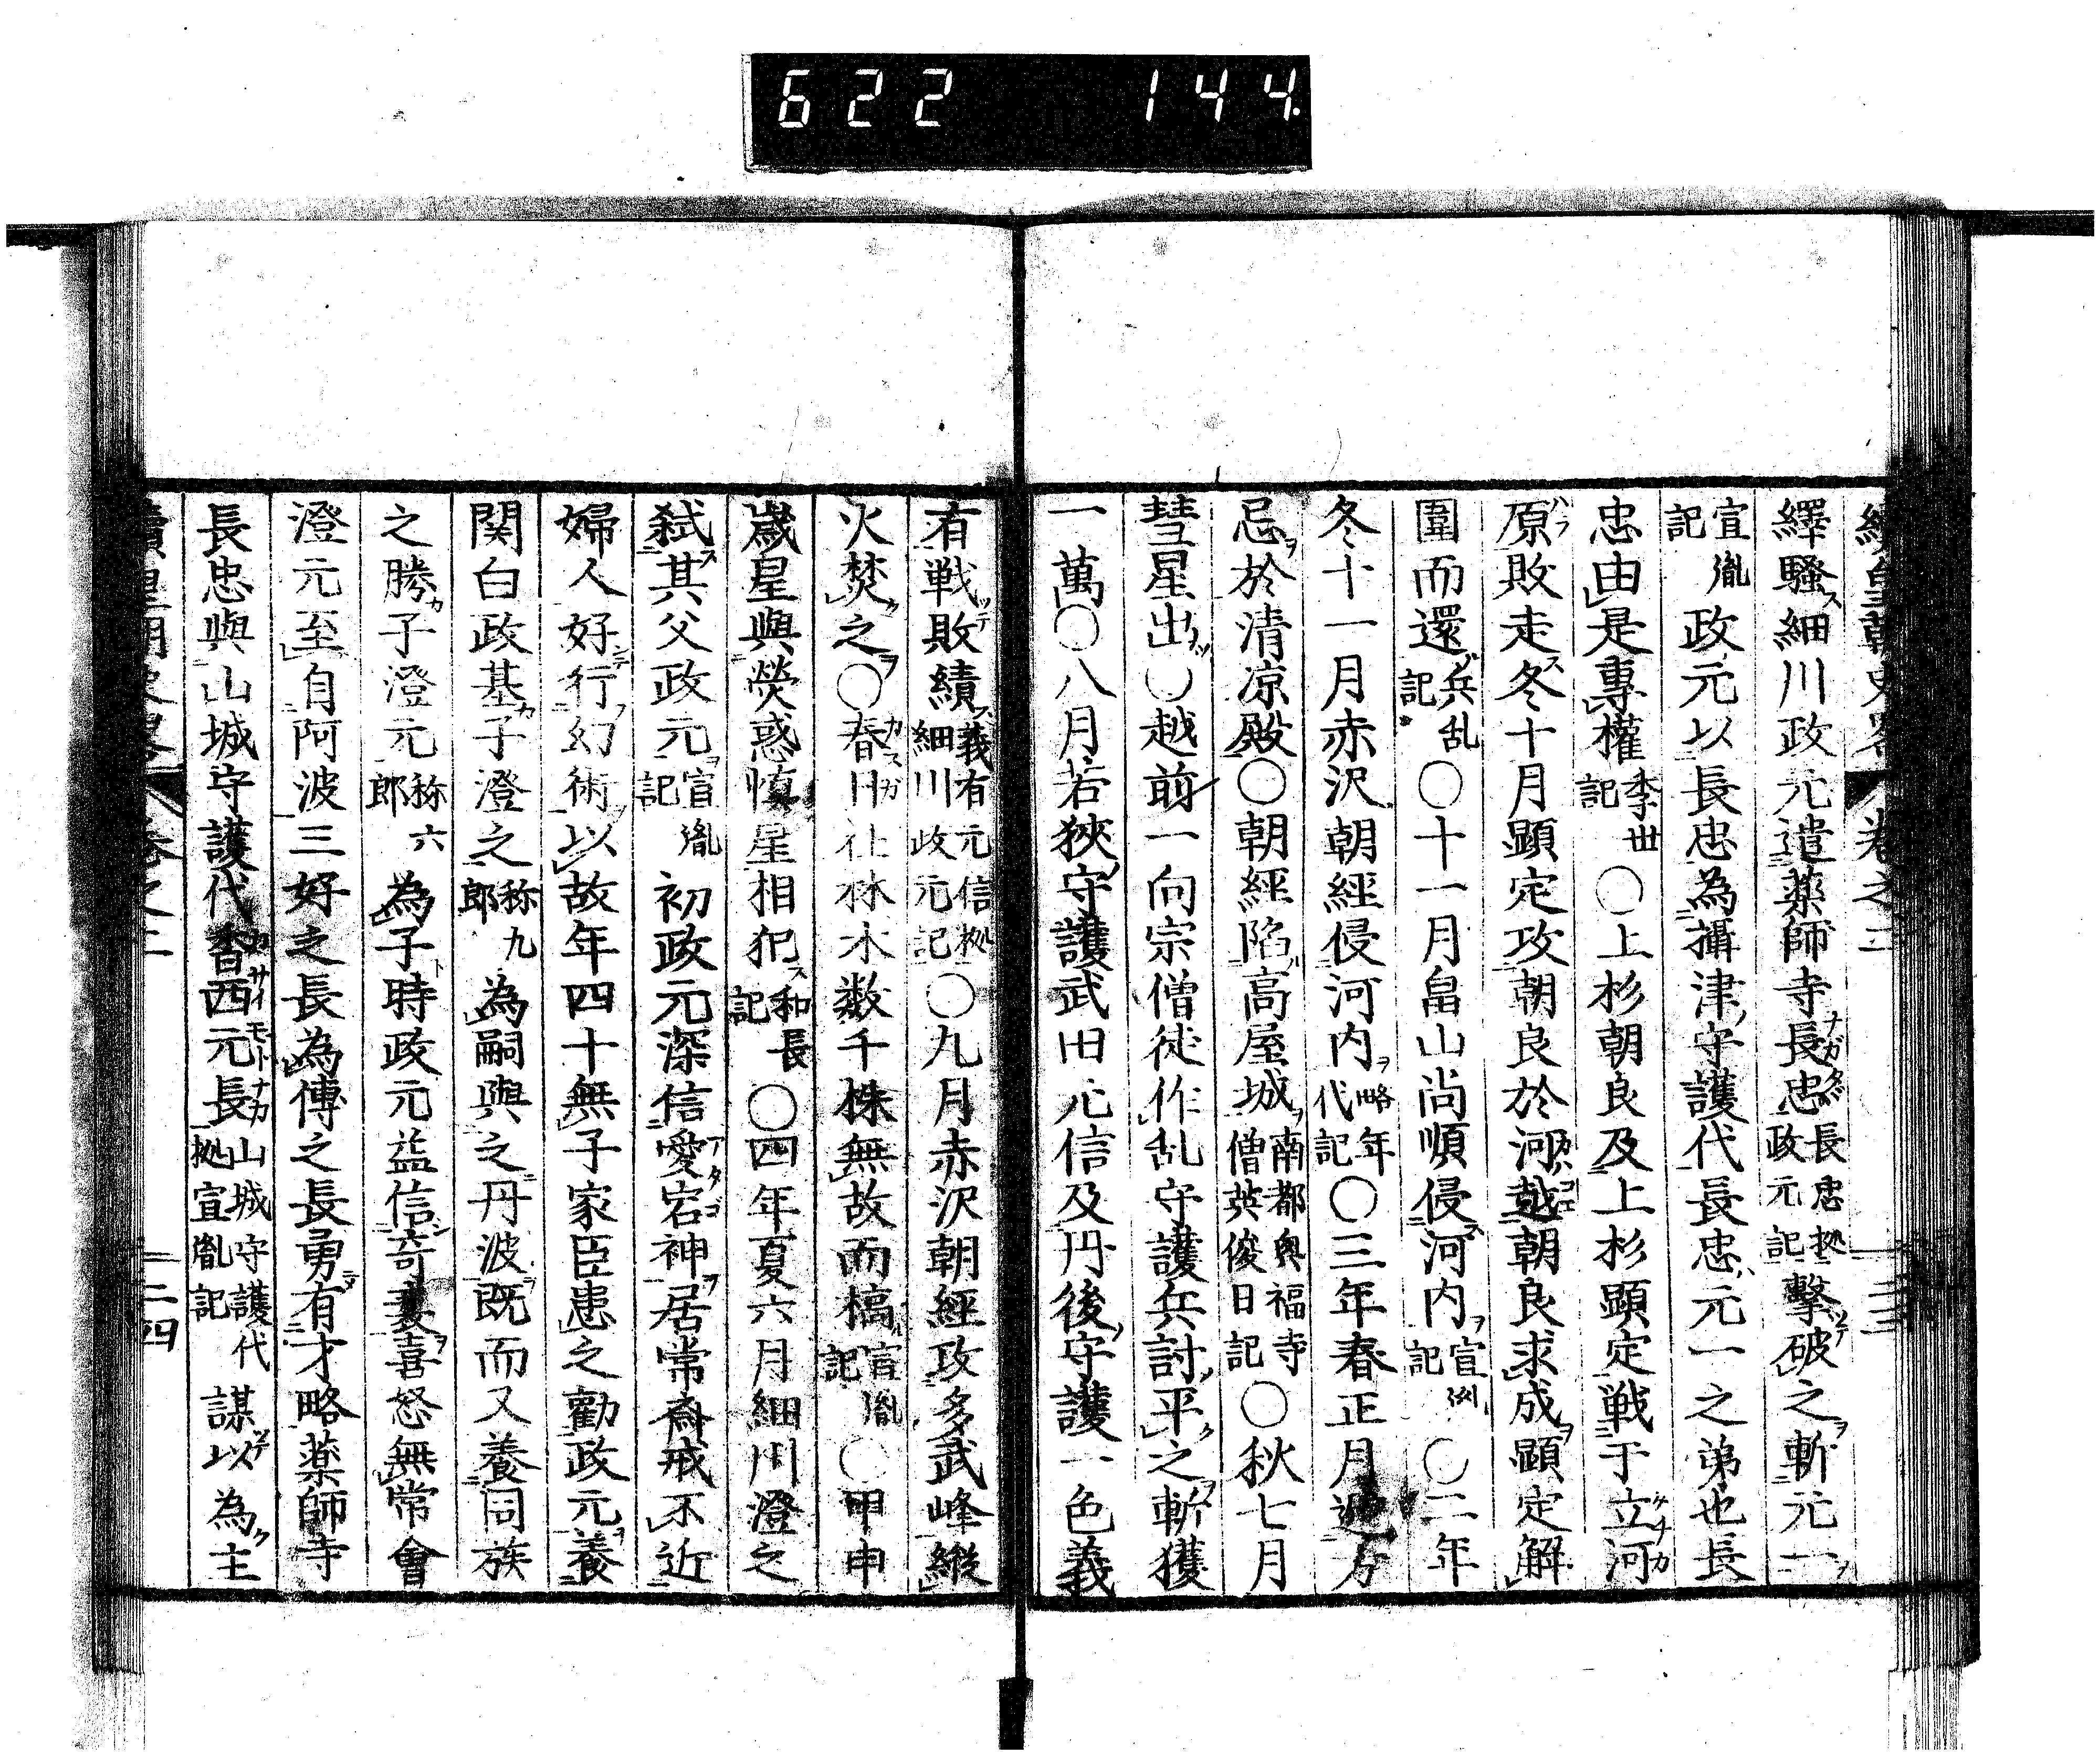 622 144.
繹騒細川政元遣薬師寺長忠長忠拠政元記擊破之斬元一
宣胤記政元以長忠為攝津守護代長忠元一之弟也長
忠由是專權季世記〇上杉朝良及上杉顕定戦于立河
原敗走冬十月顕定攻朝良於河越朝良求成顕定解
圍而還兵乱記〇十一月畠山尚順侵河内宣胤記〇二年
冬十一月赤沢朝経侵河内略年代記〇三年春正月
忌於清凉殿〇朝経陷高屋城南都興福寺僧英俊日記〇秋七月
彗星出〇越前一向宗僧徒作乱守護兵討平之斬獲
一萬〇八月若狭守護武田元信及丹後守護一色義
有戦敗績義有元信拠細川政元記〇九月赤沢朝経攻多武峰縦
火焚之〇春日社林木数千株無故而槁宣胤記〇甲申
歳星與熒惑慎星相犯和長記〇四年夏六月細川澄之
弑其父政元宣胤記初政元深信愛宕神居常斎戒不近
婦人好行幻術以故年四十無子家臣患之勸政元養
関白政基子澄之称九郎為嗣與之丹波既而又養同族
之勝子澄元称六郎為子時政元益信奇衺喜怒無常會
澄元至自阿波三好之長為傳之長勇有才略薬師寺
長忠與山城守護代香西元長山城守護代拠宣胤記謀以為主
二四